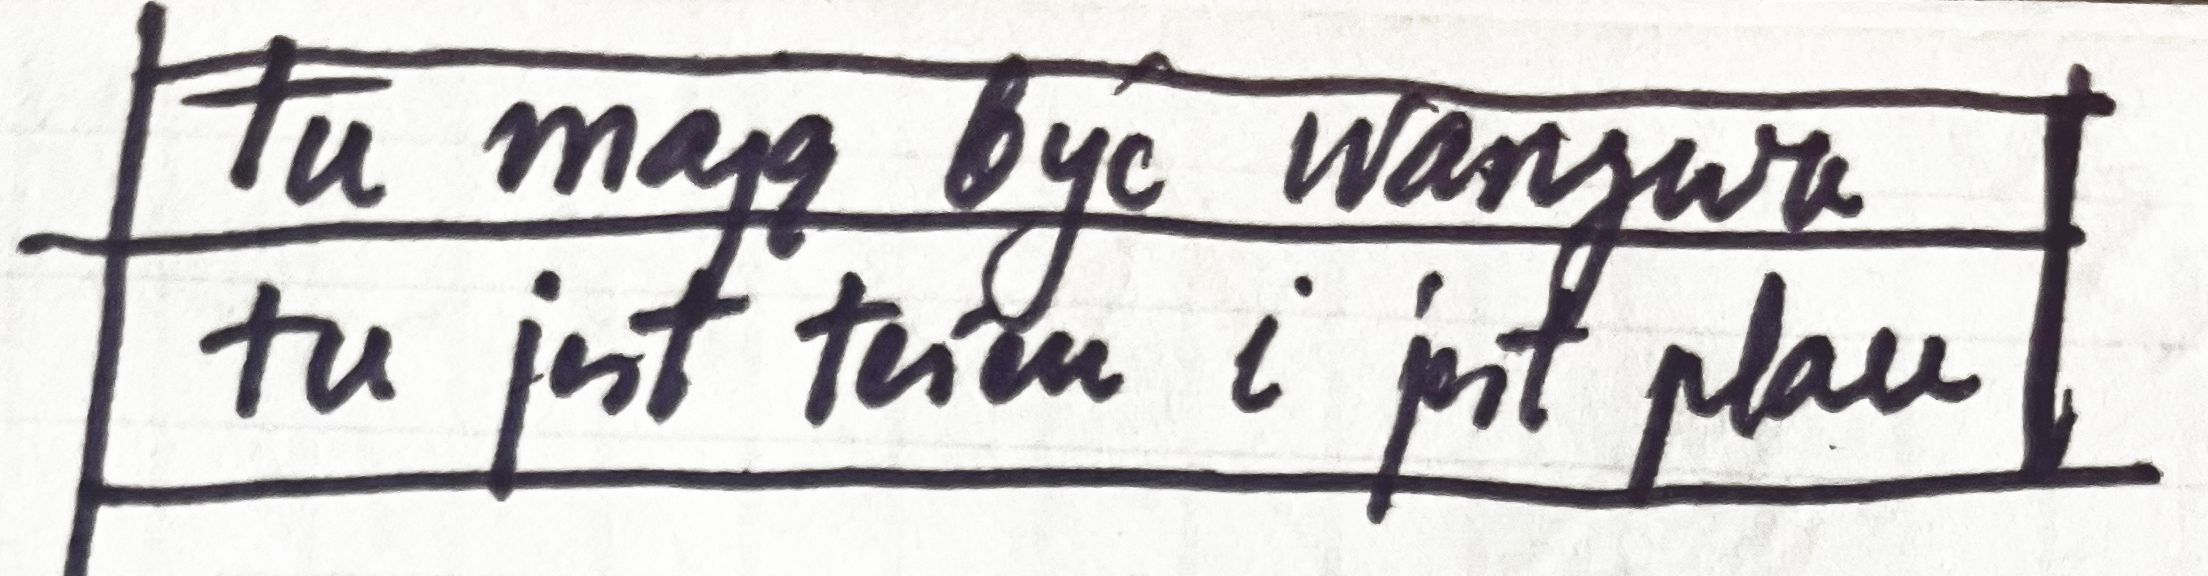 Tu mają być warzywa
tu jest teren i jest plan